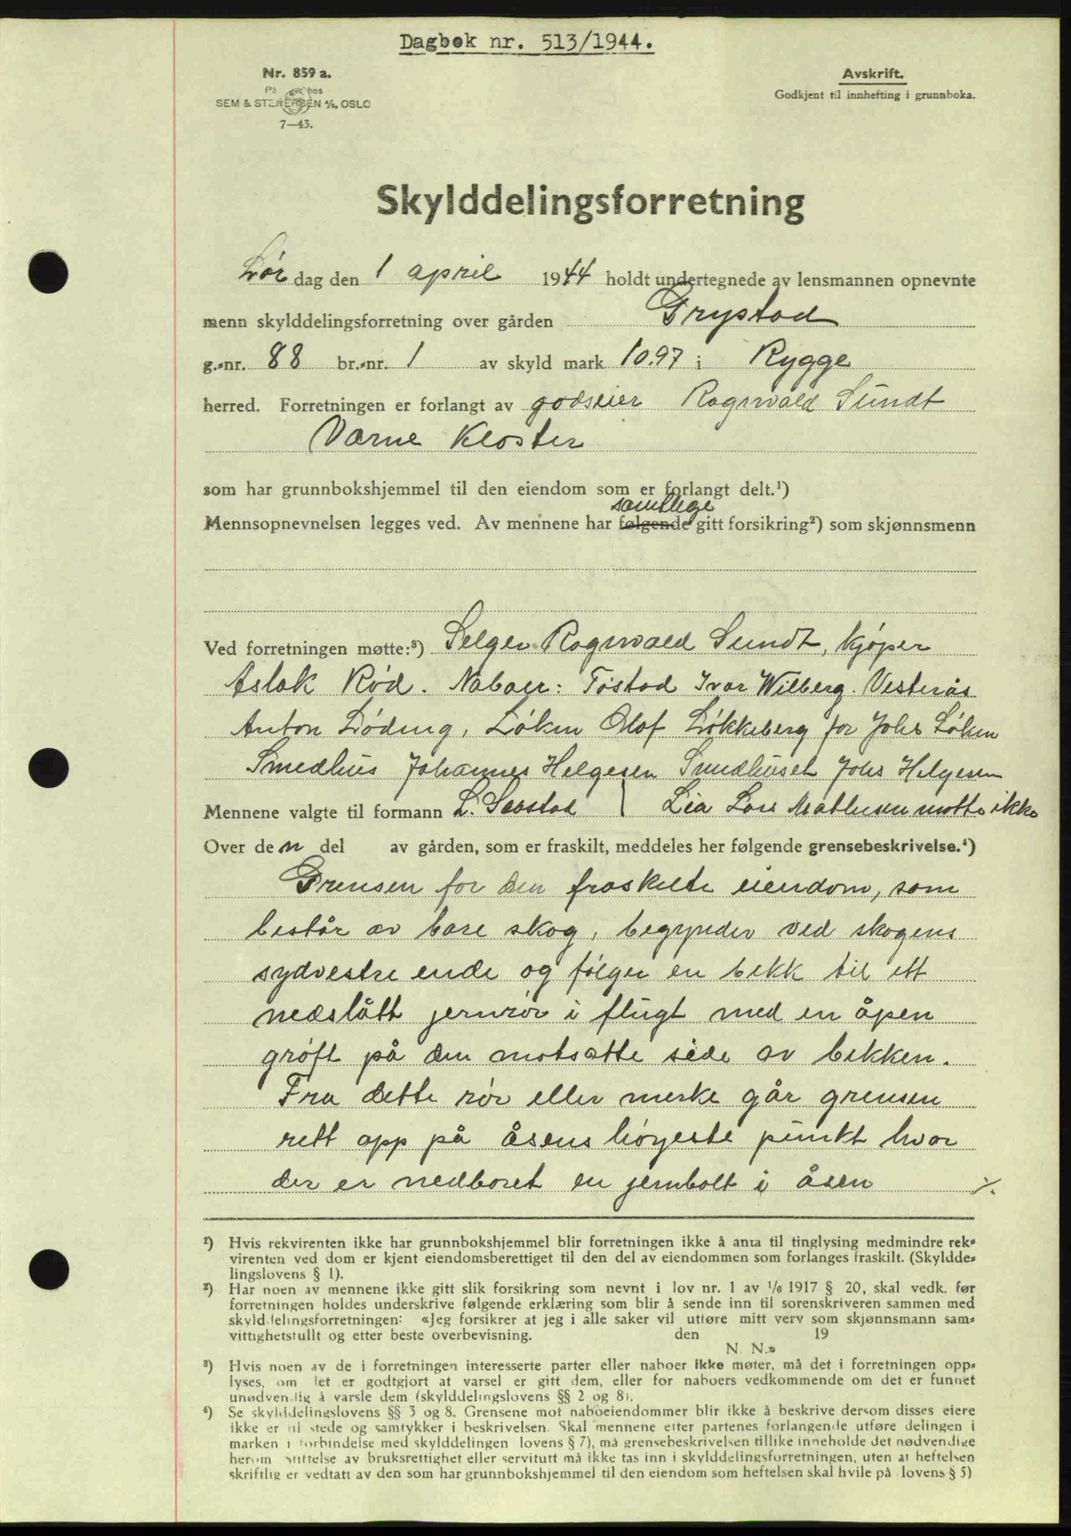 Dagbok nr. 513/1944.
Nr. 859 a.
SEM & STENERSEN A/S, OSLO
7—43.
Avskrift.
Godkjent til innhefting i grunnboka.
Skylddelingsforretning
Lør dag den 1 april 1944 holdt undertegnede av lensmannen opnevnte
menn skylddelingsforretning over gården Grystad
g.-nr. 88 br.-nr. 1 av skyld mark 10.97 i Rygge
herred. Forretningen er forlangt av godseier Ragnvald Sundt
Værne Kloster
som har grunnbokshjemmel til den eiendom som er forlangt delt.¹)
samtlige
Mennsopnevnelsen legges ved. Av mennene har følgende gitt forsikring²) som skjønnsmenn
Ved forretningen møtte:³) Selger Ragnvald Sundt, kjøper
Aslak Rød. Naboer: Tøstad Ivar Wilberg. Vesterås
Anton Løding, Løken Olof Løkkeberg for Johs Løken
Smedhus Johannes Helgesen Smedhuset Johs Helgesen
Mennene valgte til formann L. Seastad / Lia Lars Mathisen møtte ikke
Over den del av gården, som er fraskilt, meddeles her følgende grensebeskrivelse.⁴)
Grensen for den fraskilte eiendom, som
består av bare skog, begynder ved skogens
sydvestre ende og følger en bekk til ett
nedslått jernrør i flugt med en åpen
grøft på den motsatte side av bekken.
Fra dette rør eller merke går grensen
rett opp på åsens høyeste punkt hvor
der er nedboret en jernbolt i åsen ./.
¹) Hvis rekvirenten ikke har grunnbokshjemmel blir forretningen ikke å anta til tinglysing medmindre rek-
virenten ved dom er kjent eiendomsberettiget til den del av eiendommen som forlanges fraskilt. (Skyldde-
lingslovens § 1).
²) Har noen av mennene ikke gitt slik forsikring som nevnt i lov nr. 1 av ¹/₆ 1917 § 20, skal vedk. før
forretningen holdes underskrive følgende erklæring som blir å sende inn til sorenskriveren sammen med
skylddelingsforretningen: «Jeg forsikrer at jeg i alle saker vil utføre mitt verv som skjønnsmann sam-
vittighetsfullt og etter beste overbevisning. den 19
N. N.»
³) Hvis noen av de i forretningen interesserte parter eller naboer ikke møter, må det i forretningen opp-
lyses, om det er godtgjort at varsel er gitt dem, eller for naboers vedkommende om det er funnet
unødvendig å varsle dem (skylddelingslovens §§ 2 og 8).
⁴) Se skylddelingslovens §§ 3 og 8. Grensene mot naboeiendommer blir ikke å beskrive dersom disses eiere
ikke er til stede og samtykker i beskrivelsen. Skal mennene etter partenes forlangende utføre delingen i
marken i forbindelse med skylddelingen lovens § 7), må grensebeskrivelsen tillike inneholde det nødvendige
herom. Stiftelse av bruksrettighet eller servitutt må ikke tas inn i skylddelingsforretningen, uten at heftelsen
skriftlig er vedtatt av den som har grunnbokshjemmel til den eiendom som heftelsen skal hvile på lovens § 5)